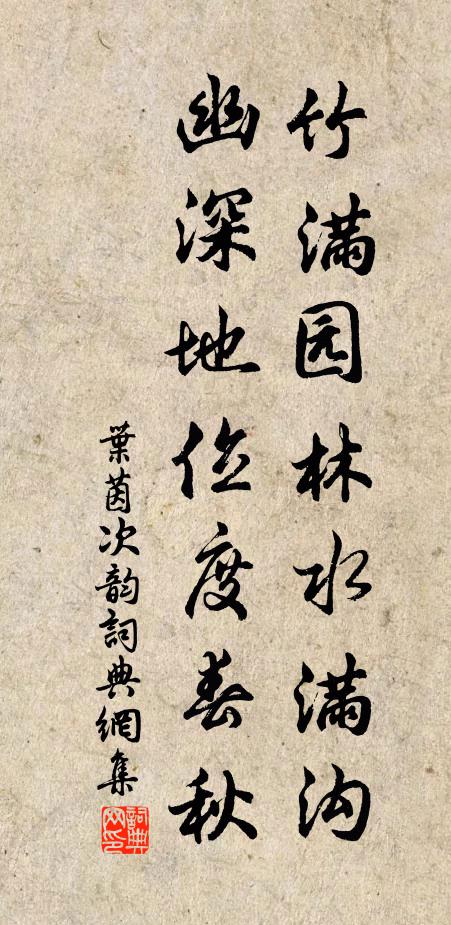 竹满园林水满沟
幽深地位度春秋
葉茵次韵詞典網集
詞典
网印